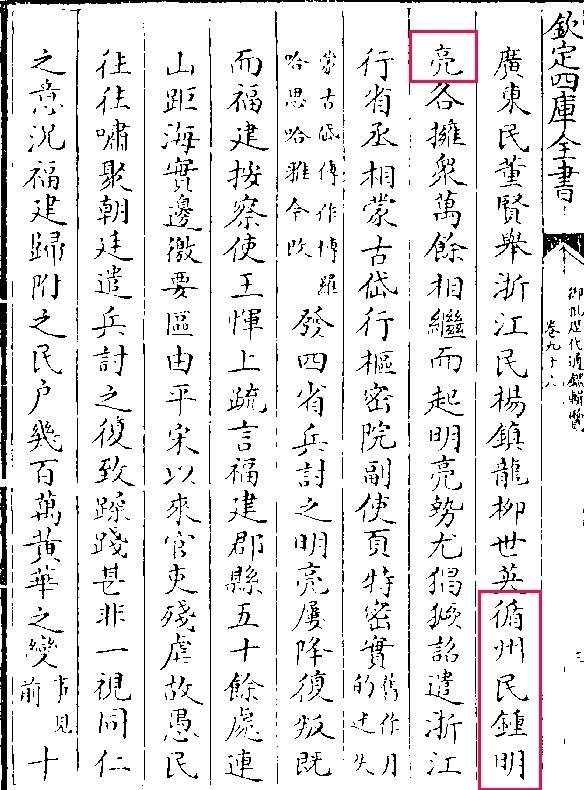 欽定四庫全書
御批歷代通鑑輯覽
卷九十八
廣東民董賢舉浙江民楊鎮龍柳世英循州民鍾明
亮各擁衆萬餘相繼而起明亮勢尤猖獗詔遣浙江
行省丞相蒙古岱行樞密院副使頁特密實舊作月的迷失
蒙古岱傳作博羅哈思哈雅今改發四省兵討之明亮屢降復叛既
而福建按察使王惲上疏言福建郡縣五十餘處連
山距海實邊徼要區由平宋以來官吏殘虐故愚民
往往嘯聚朝廷遣兵討之復致蹂踐甚非一視同仁
之意况福建歸附之民户幾百萬黄華之變事見前十